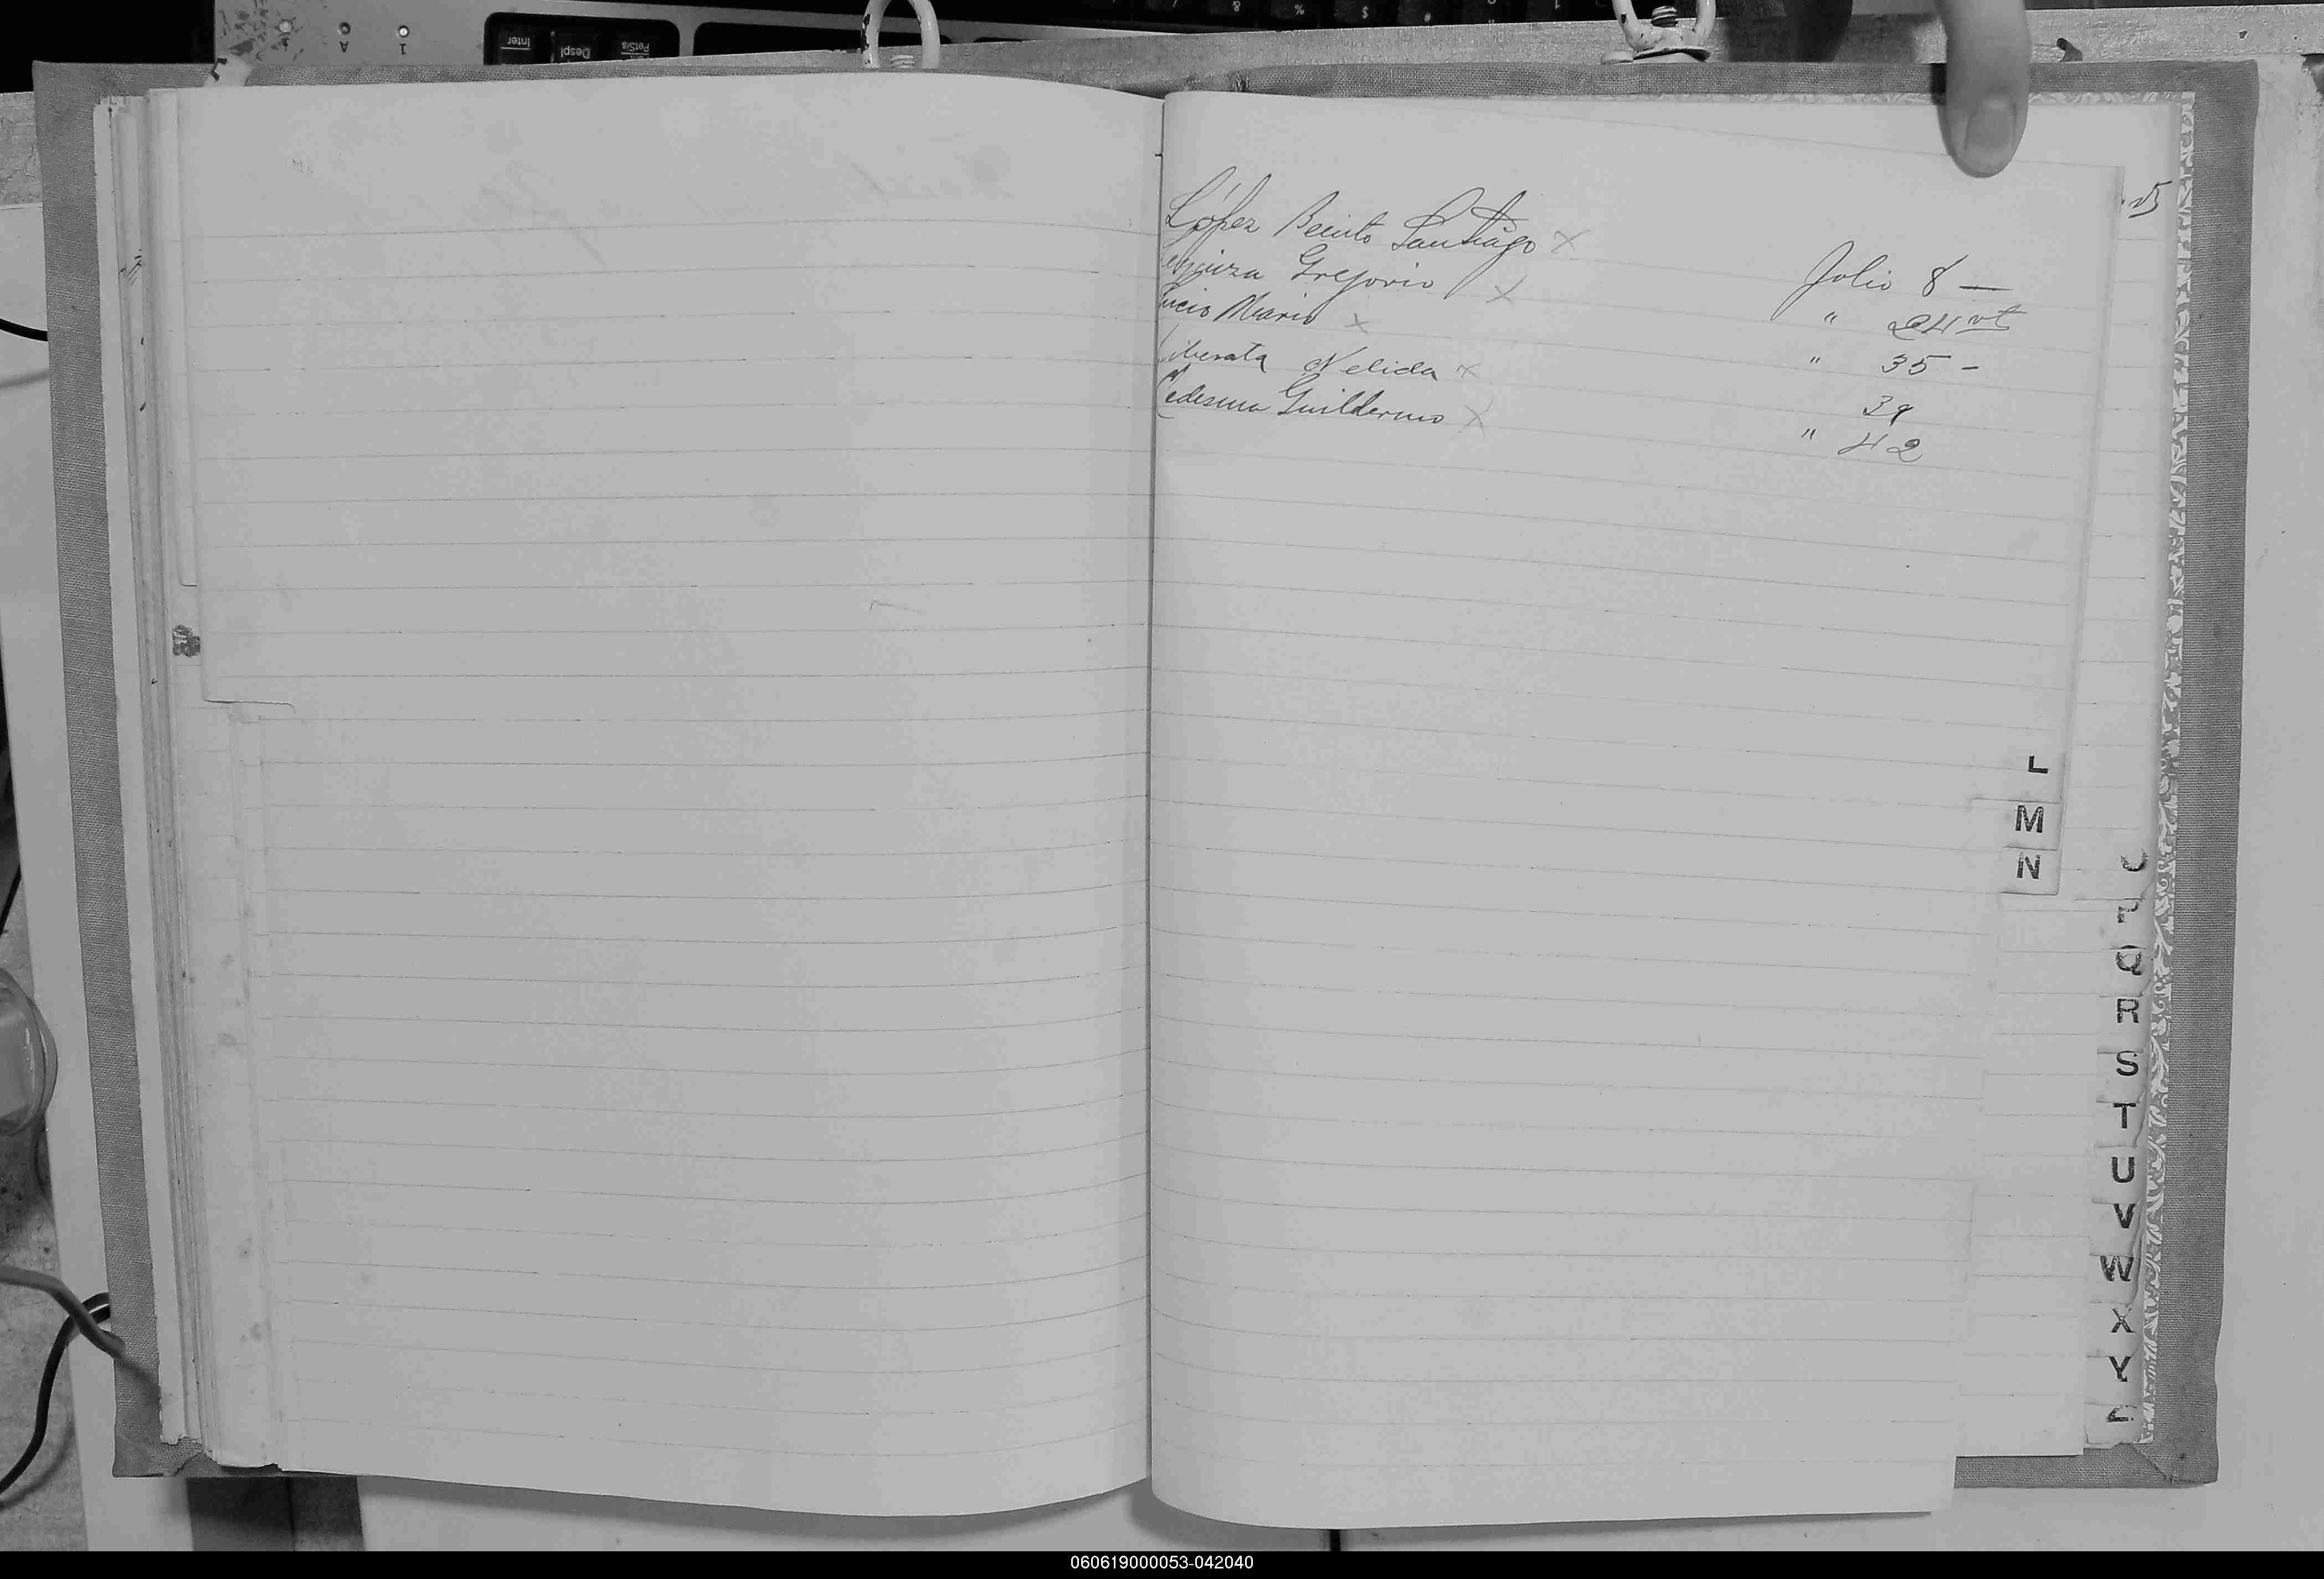 López Benito Santiago x Folio 8 —
Gregorio x " 24 vt
Lucio Mario x " 35 -
Liberata Nelida x 39
Ledesma Guillermo x " 42
L
M
N
Q
R
S
T
U
V
W
X
Y
Z
060619000053-042040